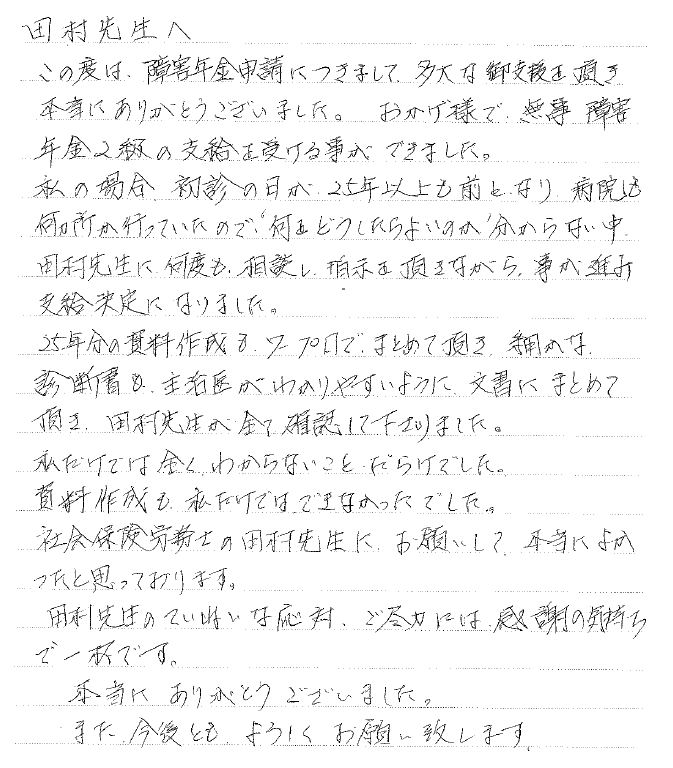 田村先生へ
この度は、障害年金申請につきまして、多大な御支援を頂き
本当にありがとうございました。 おかげ様で、無事 障害
年金2級の支給を受ける事ができました。
私の場合、初診の日が、25年以上も前となり、病院も
何カ所か行っていたので、“何をどうしたらよいのか”分からない中、
田村先生に何度も、相談し、指示を頂きながら、事が進み
支給決定になりました。
25年分の資料作成も、ワープロで、まとめて頂き、細かな
診断書も、主治医がわかりやすいように、文書にまとめて
頂き、田村先生が全て確認して下さりました。
私だけでは全く、わからないこと だらけでした。
資料作成も、私だけではできなかったでした。
社会保険労務士の田村先生に、お願いして、本当によか
ったと思っております。
田村先生のていねいな応対、ご尽力には、感謝の気持ち
で一杯です。
本当に ありがとう ございました。
また、今後とも、よろしく お願い致します。